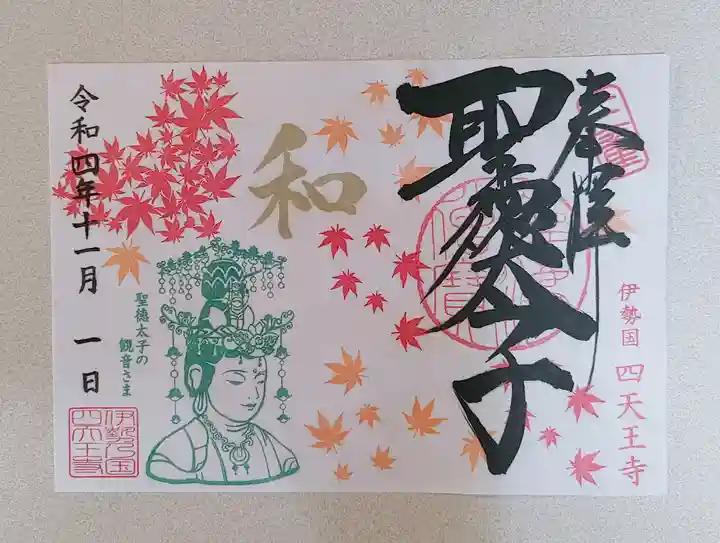 奉拝
聖徳太子
伊勢国 四天王寺
和
聖徳太子の
観音さま
令和四年十一月 一日
伊勢乃国
四天王寺